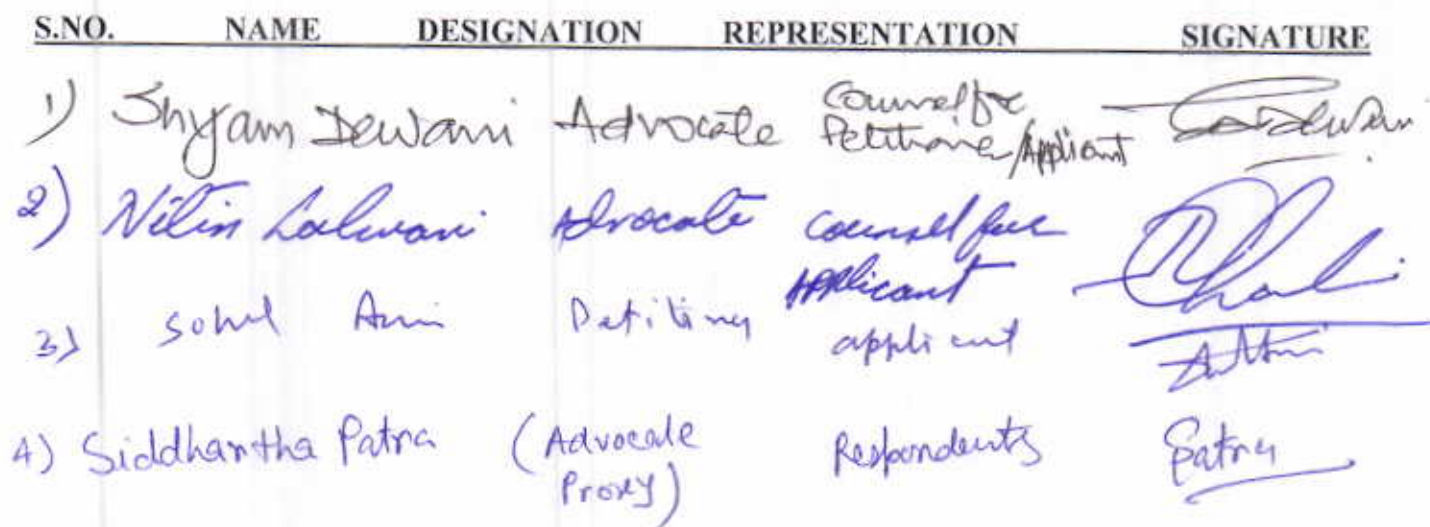 S.NO. NAME DESIGNATION REPRESENTATION SIGNATURE
1) Shyam Dewani Advocate Counsel for
Petitioner/Applicant
2) Nitin Lalwani Advocate counsel for
Applicant
3) Sohil applicant
4) Siddhantha Patra (Advocate Respondents Patra
Proxy)